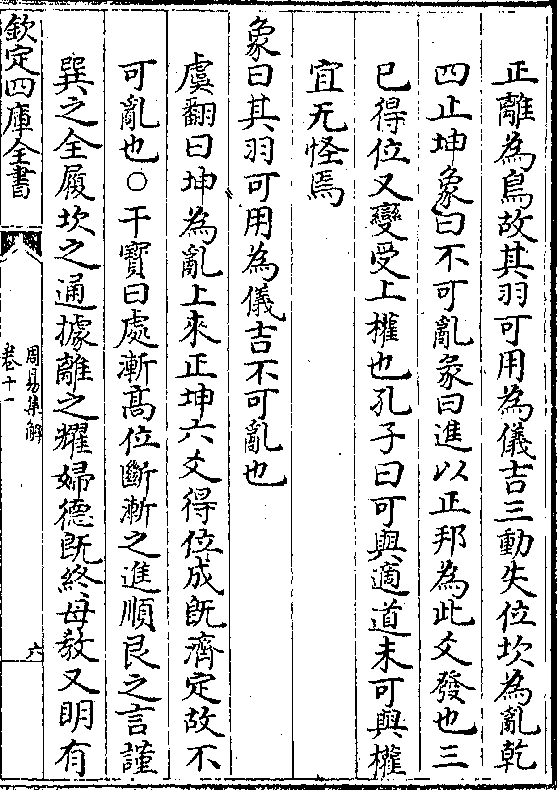 正離為鳥故其羽可用為儀吉三動失位坎為亂乾
四止坤象曰不可亂彖曰進以正邦為此爻發也三
已得位又變受上權也孔子曰可與適道未可與權
宜无怪焉
象曰其羽可用為儀吉不可亂也
虞翻曰坤為亂上來正坤六爻得位成旣濟定故不
可亂也○干寶曰處漸髙位斷漸之進順艮之言謹
巽之全履坎之通據離之耀婦德旣終母敎又明有
欽定四庫全書
周易集解
卷十一
六